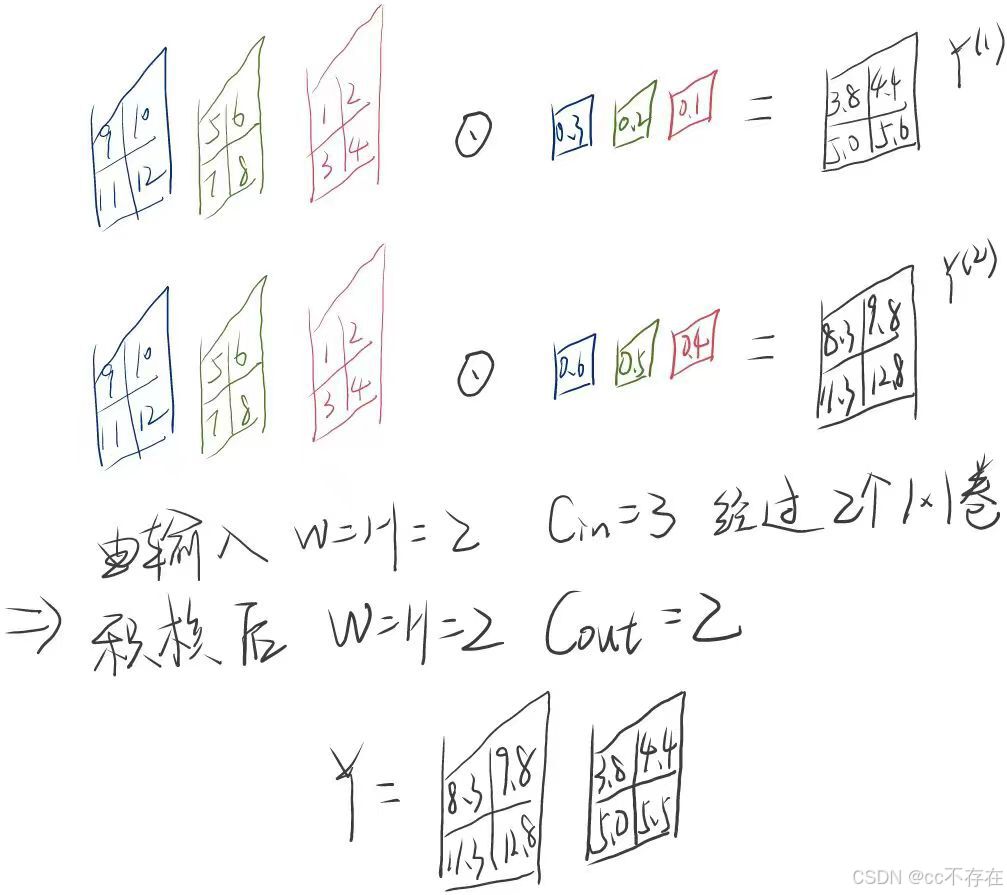 9 10 5 6 1 2 ⊙ 0.3 0.2 0.1 = 3.8 4.4 Y(1)
11 12 7 8 3 4 5.0 5.6
9 10 5 6 1 2 ⊙ 0.6 0.5 0.4 = 8.3 9.8 Y(2)
11 12 7 8 3 4 11.3 12.8
由输入 W=H=2 Cin=3 经过2个1×1卷
⇒ 积核后 W=H=2 Cout=2
Y = 8.3 9.8 3.8 4.4
11.3 12.8 5.0 5.5
CSDN @cc不存在